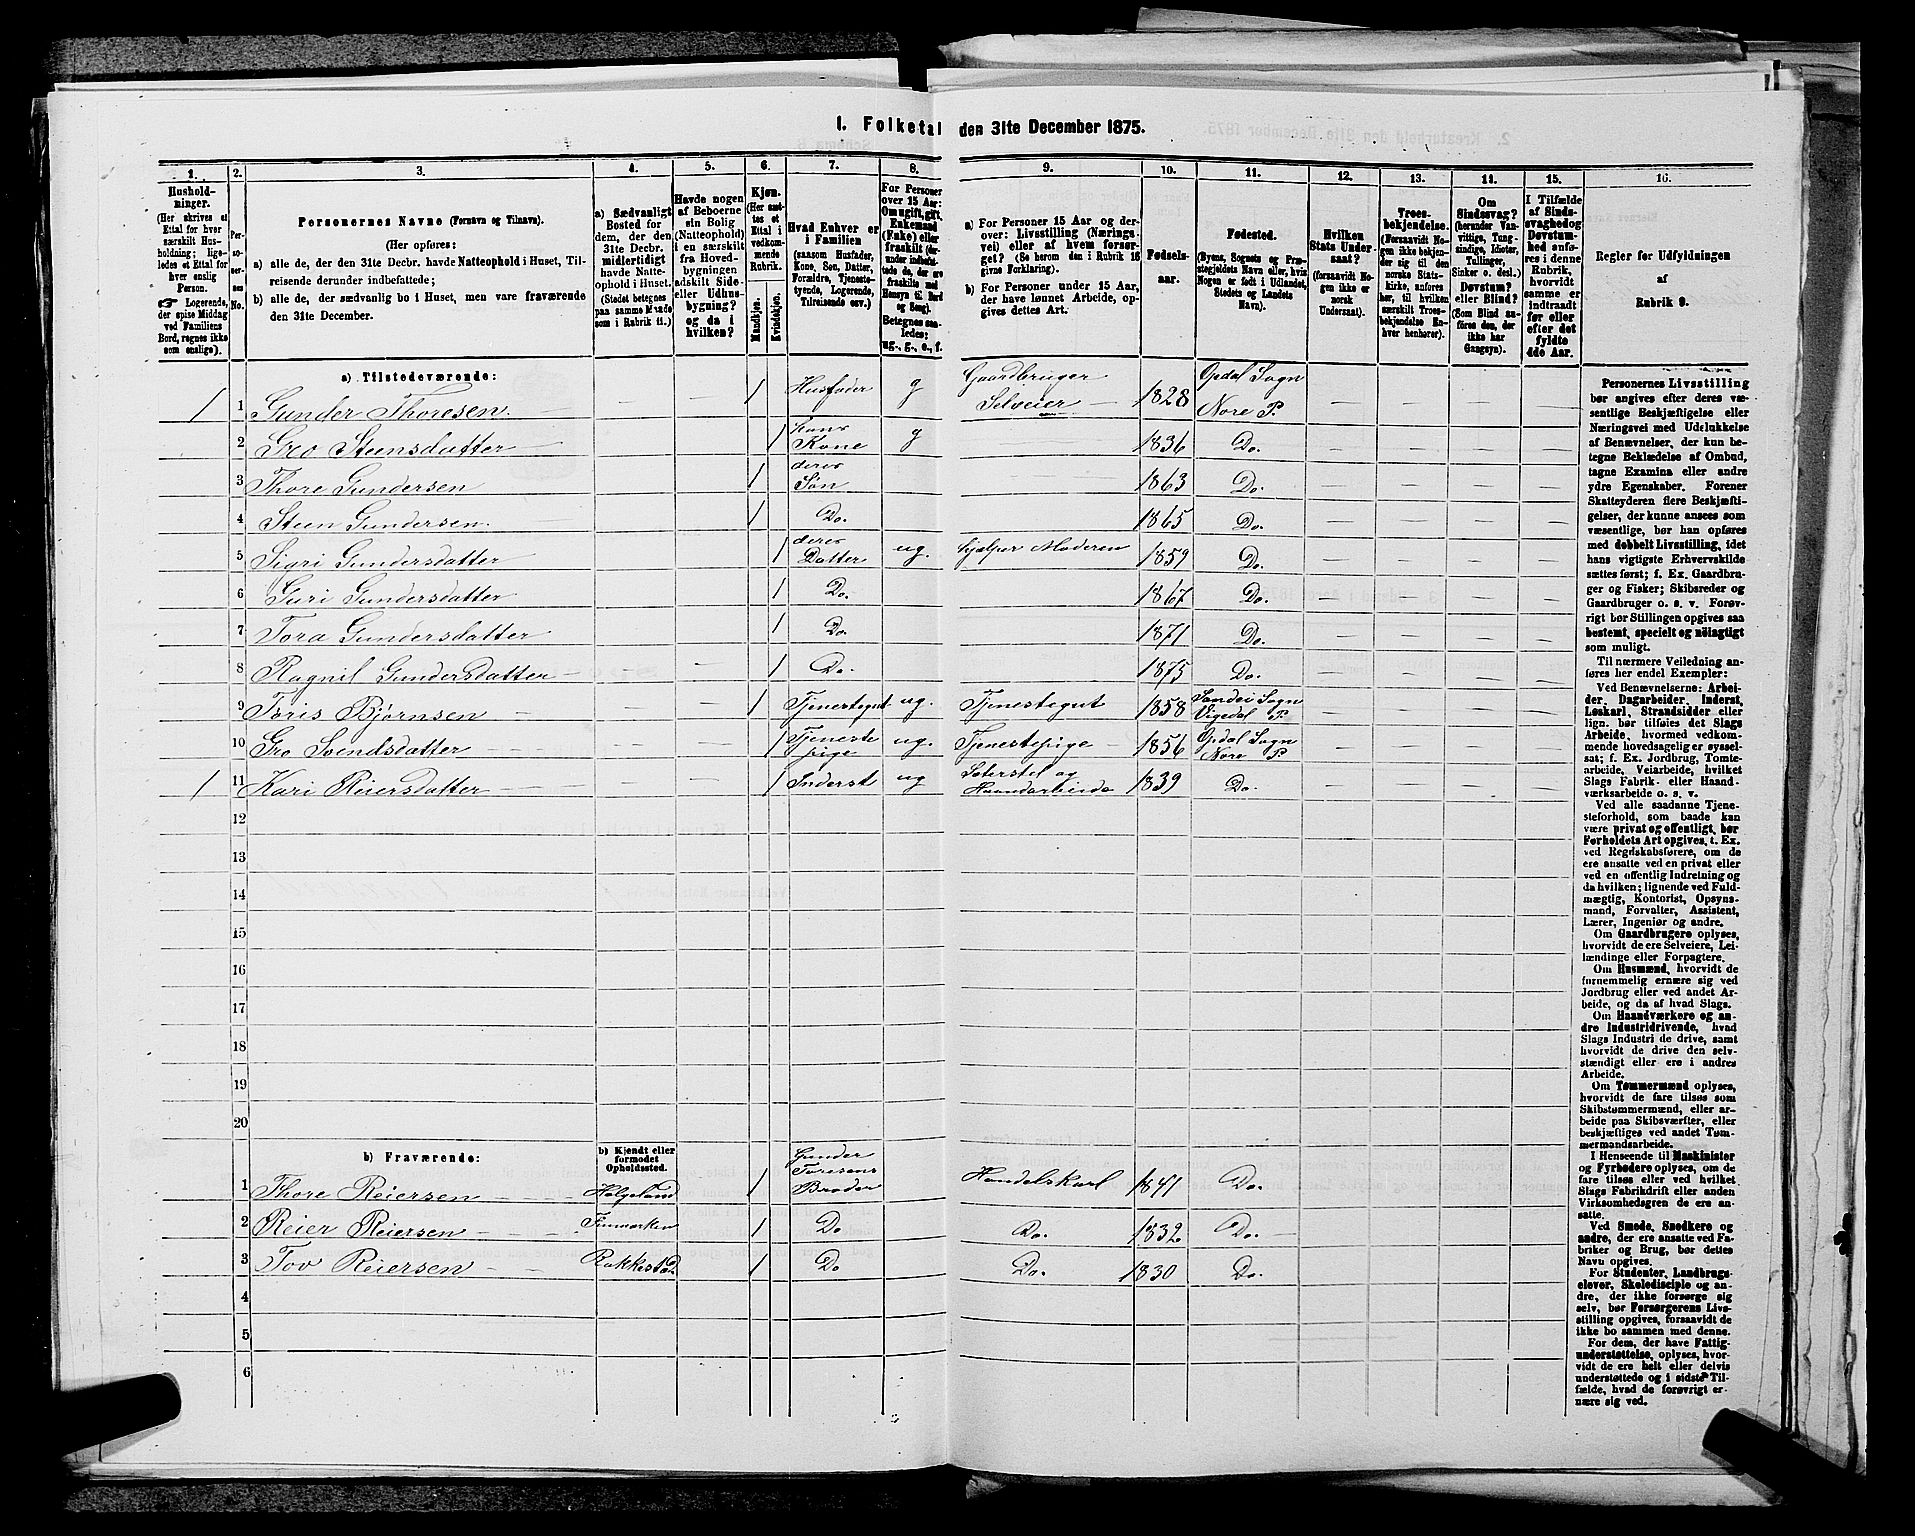 1. Folketal den 31te December 1875.
1. 2. 3. 4. 5. 6. 7. 8. 9. 10. 11. 12. 13. 14. 15. 16.
Hushold-
ninger.
(Her skrives et
Ettal for hver
særskilt Hus-
holdning; lige-
ledes et Ettal for
hver enslig
Person.
☞ Logerende,
der spise Middag
ved Familiens
Bord, regnes ikke
som enslige).
Per-
soner-
nes
No.
Personernes Navne (Fornavn og Tilnavn).
(Her opføres:
a) alle de, der den 31te Decbr. havde Natteophold i Huset, Til-
reisende derunder indbefattede;
b) alle de, der sædvanlig bo i Huset, men vare fraværende
den 31te December.
a) Sædvanligt
Bosted for
dem, der den
31te Decbr.
midlertidigt
havde Natte-
ophold i Huset.
(Stedet betegnes
paa samme Maade
som i Rubrik 11.)
Havde nogen
af Beboerne
sin Bolig
(Natteophold)
i en særskilt
fra Hoved-
bygningen
adskilt Side-
eller Udhus-
bygning?
og da i
hvilken?
Kjøn.
(Her sæt-
tes et
Ettal i
vedkom-
mende
Rubrik.
Mandkjøn.
Kvindekjøn.
Hvad Enhver er
i Familien
(saasom Husfader,
Kone, Søn, Datter,
Forældre, Tjeneste-
tyende, Logerende,
Tilreisende osv.)
For Personer
over 15 Aar:
Om ugift, gift,
Enkemand
(Enke) eller
fraskilt (der-
under indbefat-
tede de, der ere
fraskilte med
Hensyn til Bord
og Seng).
Betegnes saa-
ledes:
ug., g., e., f.
a) For Personer 15 Aar og der-
over: Livsstilling (Nærings-
vei) eller af hvem forsør-
get? (Se herom den i Rubrik 16
givne Forklaring).
b) For Personer under 15 Aar,
der have lønnet Arbeide, op-
gives dettes Art.
Fødsels-
aar.
Fødested.
(Byens, Sognets og Præ-
stegjeldets Navn eller, hvis
Nogen er født i Udlandet,
Stedets og Landets
Navn).
Hvilken
Stats Under-
saat?
(forsaavidt No-
gen ikke er
norsk
Undersaat).
Troes-
bekjendelse.
(Forsaavidt No-
gen ikke bekjen-
der sig til den
norske Stats-
kirke, anføres
her, til hvilken
særskilt Troes-
bekjendelse En-
hver henhører).
Om
Sindssvag?
(herunder Van-
vittige, Tung-
sindige, Idioter,
Tullinger,
Sinker o. desl.)
Døvstum?
eller Blind?
(Som Blind an-
føres den, der
ikke har
Gangsyn).
I Tilfælde
af Sinds-
svaghed og
Døvstum-
hed anfø-
res i denne
Rubrik,
hvorvidt
samme er
indtraadt
før eller
efter det
fyldte
4de Aar.
Regler for Udfyldningen
af
Rubrik 9.
a) Tilstedeværende:
1 1 Gunder Thoresen — — 1 Husfader g Gaardbruger Selveier 1828 Opdal Sogn Nore P. — — — —
2 Gro Steensdatter 1 hans Kone g 1836 Do. — — — —
3 Thore Gundersen 1 deres Søn 1863 Do. — — — —
4 Steen Gundersen 1 Do. 1865 Do. — — — —
5 Sigri Gundersdatter 1 deres Datter ug. hjælper Moderen 1859 Do. — — — —
6 Guri Gundersdatter 1 Do. 1867 Do. — — — —
7 Tora Gundersdatter 1 Do. 1871 Do. — — — —
8 Ragnil Gundersdatter — — 1 Do. 1875 Do. — — — —
9 Toris Bjørnsen — — 1 Tjenestegut ug. Tjenestegut 1858 Sogn Vigedal P. — — — —
10 Gro Svendsdatter — — 1 Tjeneste pige ug. Tjenestepige 1856 Opdal Sogn Nore P. — — — —
1 11 Kari Reiersdatter — — 1 Inderst ug Haandarbeide 1839 Do. — — — —
12
13
14
15
16
17
18
19
20
b) Fraværende:
b) Kjendt eller
formodet
Opholdssted.
1 Thore Reiersen Helgeland 1 Gunder Toresens Broder Handelskarl 1841 Do.
2 Reier Reiersen Finmarken 1 Do Do. 1832 Do.
3 Tov Reiersen Rakkestad 1 Do Do. 1830 Do.
4
5
6
Personernes Livsstilling
bør angives efter deres væ-
sentlige Beskjæftigelse eller
Næringsvei med Udelukkelse
af Benævnelser, der kun be-
tegne Beklædelse af Ombud,
tagne Examina eller andre
ydre Egenskaber. Forener
Skatteyderen flere Beskjæfti-
gelser, der kunne ansees som
væsentlige, bør han opføres
med dobbelt Livsstilling, idet
hans vigtigste Erhvervskilde
sættes først; f. Ex. Gaardbru-
ger og Fisker; Skibsreder og
Gaardbruger o. s. v. Forøv-
rigt bør Stillingen opgives saa
bestemt, specielt og nöiagtigt
som muligt.
Til nærmere Veiledning an-
føres her endel Exempler:
Ved Benævnelserne: Arbei-
der, Dagarbeider, Inderst,
Løskarl, Strandsidder eller
lign. bør tilføies det Slags
Arbeide, hvormed vedkom-
mende hovedsagelig er syssel-
sat; f. Ex. Jordbrug, Tomte-
arbeide, Veiarbeide, hvilket
Slags Fabrik- eller Haand-
værksarbeide o. s. v.
Ved alle saadanne Tjene-
steforhold, som baade kan
være privat og offentligt, bør
Forholdets Art opgives, t. Ex.
ved Regnskabsførere, om de
ere ansatte ved en privat eller
ved en offentlig Indretning og
da hvilken; lignende ved Fuld-
mægtig, Kontorist, Opsyns-
mand, Forvalter, Assistent,
Lærer, Ingeniør og andre.
Om Gaardbrugere oplyses,
hvorvidt de ere Selveiere, Lei-
lændinge eller Forpagtere.
Om Husmænd, hvorvidt de
fornemmelig ernære sig ved
Jordbrug eller ved andet Ar-
beide, og da af hvad Slags.
Om Haandværkere og an-
dre Industridrivende, hvad
Slags Industri de drive, samt
hvorvidt de drive den selv-
stændigt eller ere i andres
Arbeide.
Om Tømmermænd oplyses,
hvorvidt de fare tilsøs som
Skibstømmermænd, eller ar-
beide paa Skibsværfter, eller
beskjæftiges ved andet Tøm-
mermandsarbeide.
I Henseende til Maskinister
og Fyrbødere oplyses, om de
fare tilsøs eller ved hvilket
Slags Fabrikdrift eller anden
Virksomhedsgren de ere an-
satte.
Ved Smede, Snedkere og
andre, der ere ansatte ved Fa-
briker og Brug, bør dettes
Navn opgives.
For Studenter, Landbrugs-
elever, Skoledisciple og an-
dre, der ikke forsørge sig
selv, bør Forsørgerens Livs-
stilling opgives, forsaavidt de
ikke bo sammen med denne.
For dem, der have Fattig-
understøttelse, oplyses, hvor-
vidt de ere helt eller delvis
understøttede og i sidste Til-
fælde, hvad de forøvrigt er-
nære sig ved.